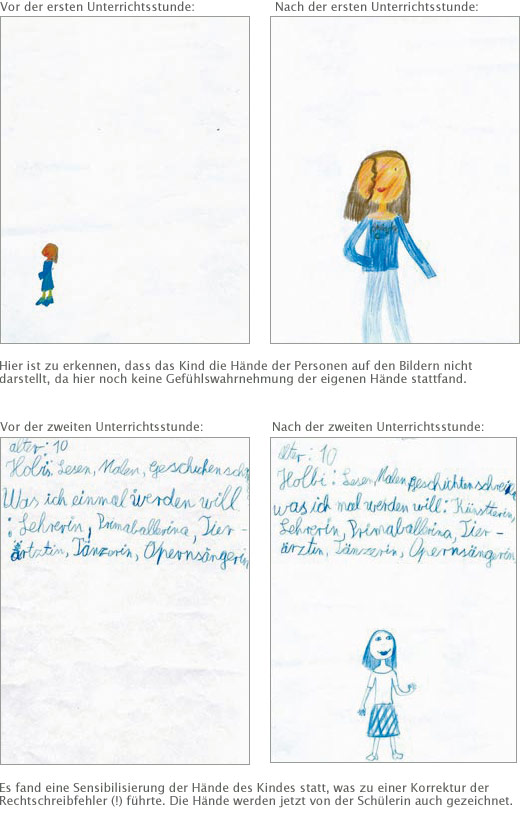 Vor der ersten Unterrichtsstunde:
Nach der ersten Unterrichtsstunde:
Hier ist zu erkennen, dass das Kind die Hände der Personen auf den Bildern nicht
darstellt, da hier noch keine Gefühlswahrnehmung der eigenen Hände stattfand.
Vor der zweiten Unterrichtsstunde:
alter: 10
Lesen, Malen,
Was ich einmal werden will
: Lehrerin, Primaballerina, Tier-
ärtztin, Tänzerin, Opernsängerin
Nach der zweiten Unterrichtsstunde:
alter: 10
Holbi: Lesen, Malen,
was ich mal werden will: Künstlerin,
Lehrerin, Primaballerina, Tier-
ärztin, Tänzerin, Opernsängerin
Es fand eine Sensibilisierung der Hände des Kindes statt, was zu einer Korrektur der
Rechtschreibfehler (!) führte. Die Hände werden jetzt von der Schülerin auch gezeichnet.